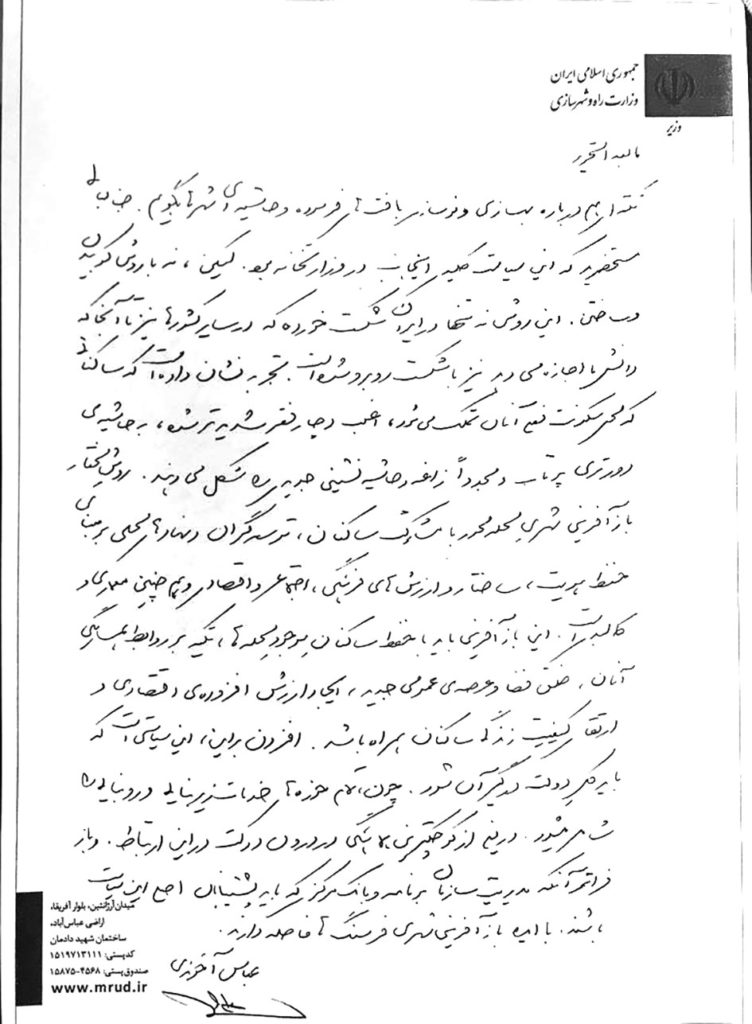 جمهوری اسلامی ایران
وزارت راه و شهرسازی
وزیر
مابعد التحریر
نکته ای هم درباره بهسازی و نوسازی بافت‌های فرسوده و حاشیه‌ای شهرها بگویم. جنابعالی
مستحضرید که این سیاست کلیدی اینجانب در وزارتخانه بود. لیکن، نه با روش کوبیدن
و ساختن. این روش نه تنها در ایران شکست خورده که در سایر کشورها نیز تا آنجا که
دانش ما اجازه می دهد نیز با شکست روبرو شده است. تجربه نشان داده است که ساکنانی
که محل سکونت فعلی آنان تملک می شود، اغلب دچار فقر شدیدتر شده، به حاشیه‌ی
دورتری پرتاب و مجدداً زاغه و حاشیه نشینی جدیدی را شکل می دهند. روش مختار
بازآفرینی شهری محله محور با مشارکت ساکنان، توسعه‌گران و نهادهای محلی بر مبنای
حفظ هویت، ساختار و ارزش های فرهنگی، اجتماعی و اقتصادی و هم چنین معماری و
کالبدی است. این بازآفرینی باید با حفظ ساکنان موجود محله‌ها، تکیه بر روابط همسایگی
آنان، خلق فضا و عرصه‌ی عمومی جدید، ایجاد ارزش افزوده‌ی اقتصادی و
ارتقای کیفیت زندگی ساکنان همراه باشد. افزون براین، این سیاستی است که
باید کل دولت درگیر آن شود. چون، تمام حوزه‌های خدمات زیربنایی و روبنایی را
شامل میشود. دریغ از کوچکترین هماهنگی در درون دولت در این ارتباط. و باز
فراتر آنکه مدیریت سازمان برنامه و بانک مرکزی که باید پشتیبان اصلی این سیاست
باشند. با ایده بازآفرینی شهری فرسنگ ها فاصله دارند.
عباس آخوندی
میدان آرژانتین، بلوار آفریقا،
اراضی عباس‌آباد،
ساختمان شهید دادمان
کدپستی: ۱۵۱۹۷۱۳۱۱۱
صندوق پستی: ۴۵۶۸-۱۵۸۷۵
www.mrud.ir